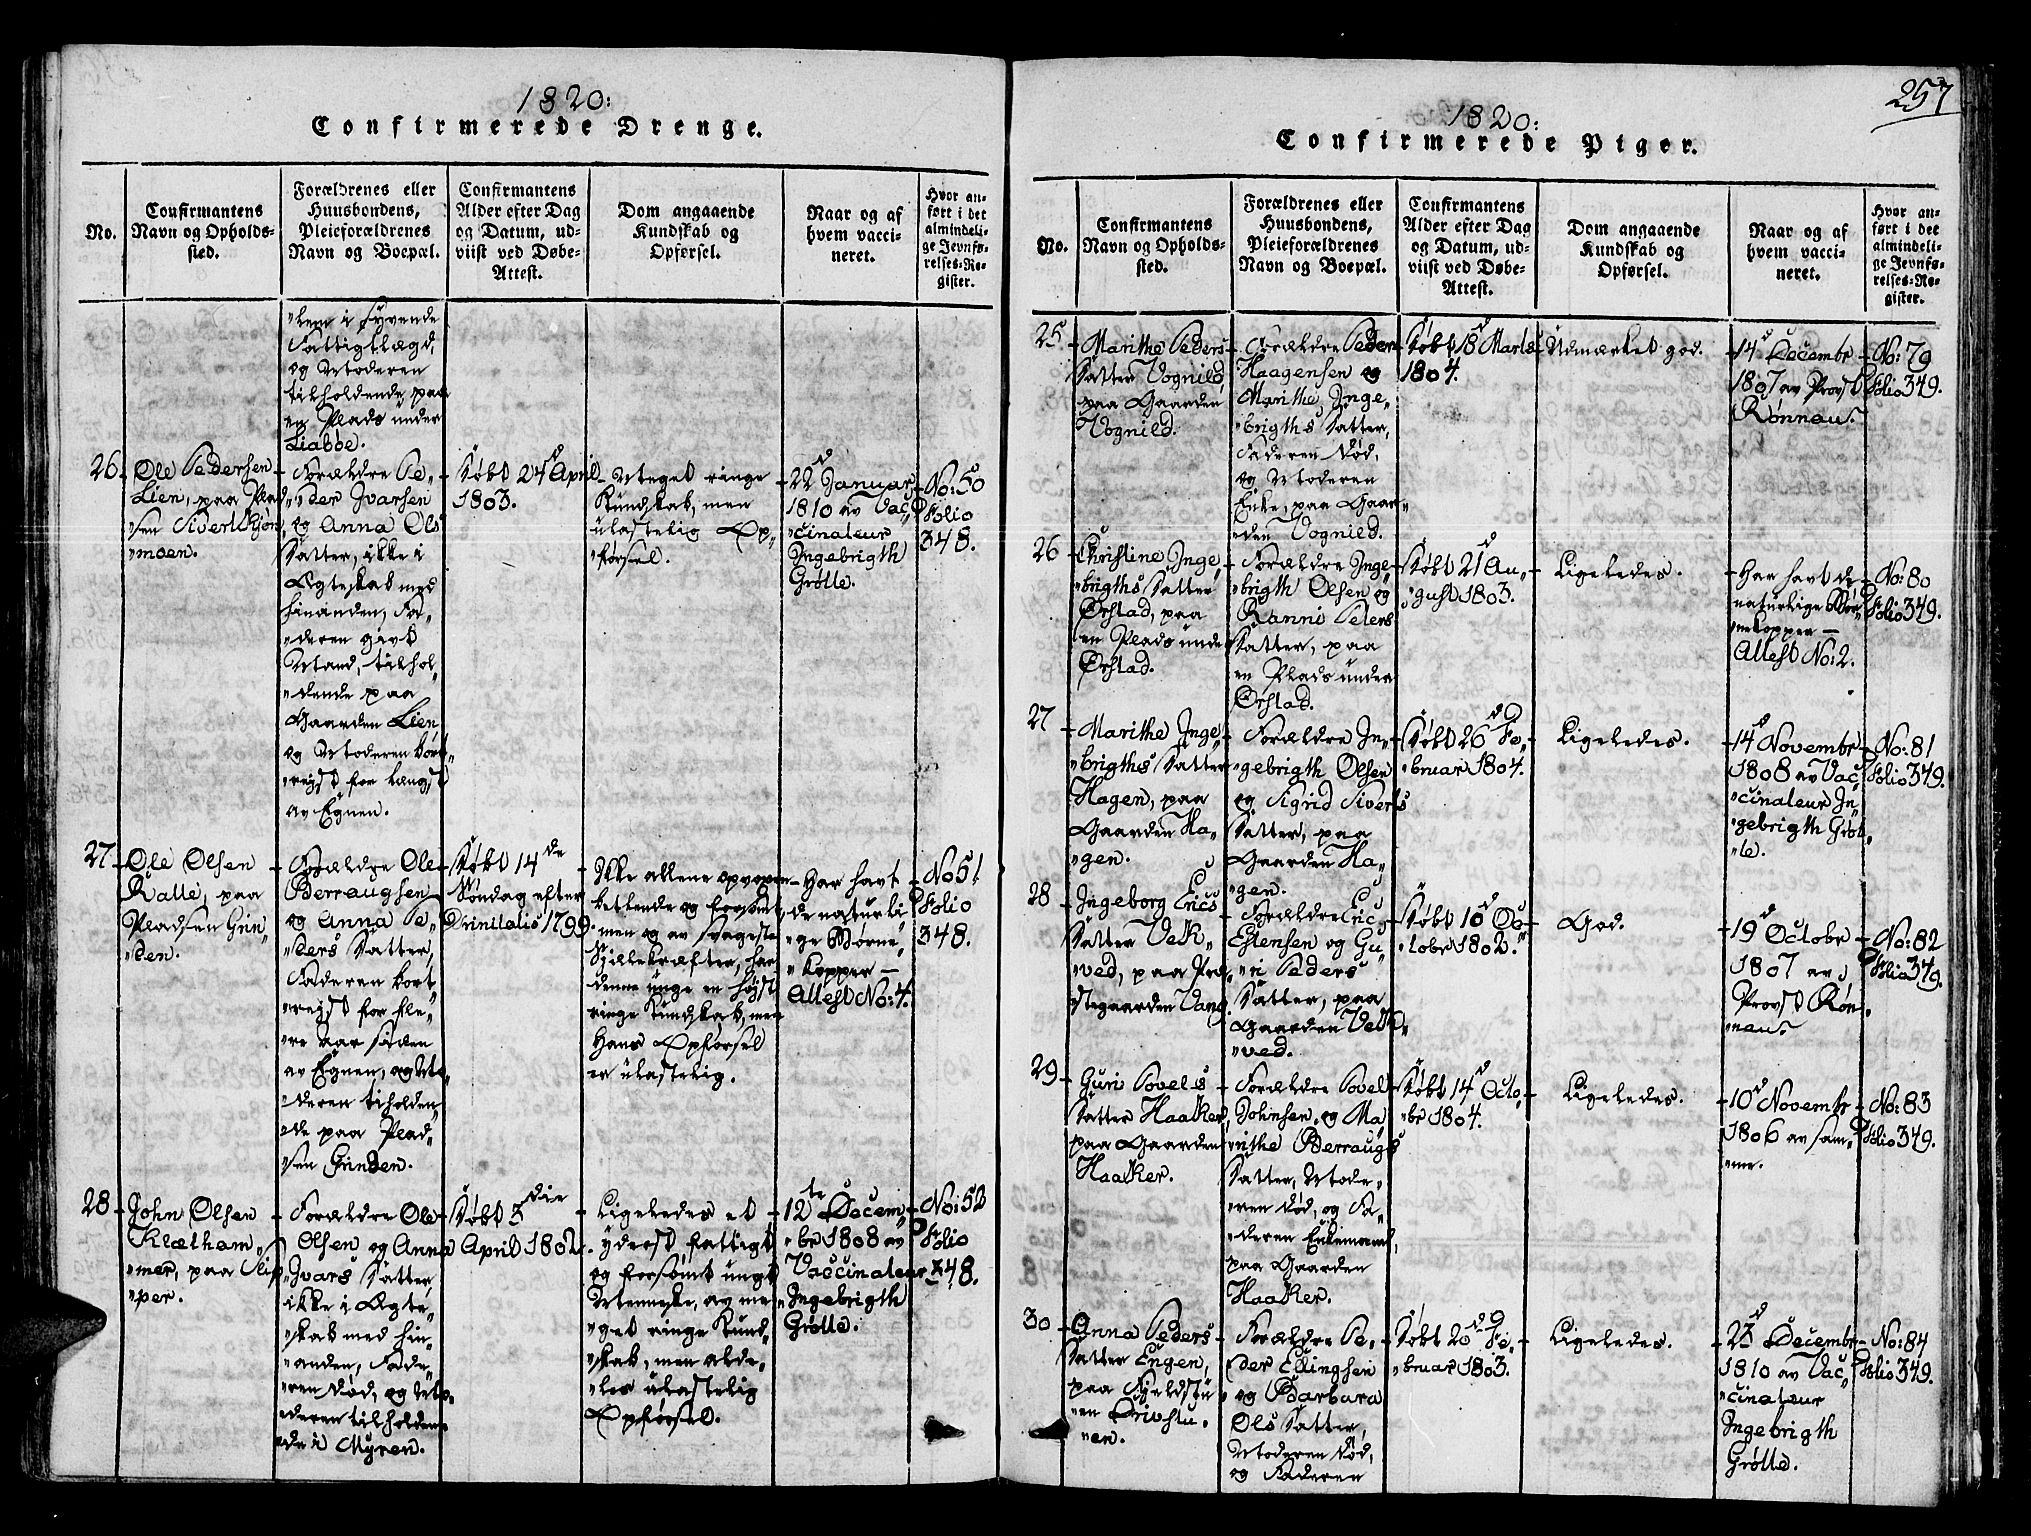 1820:
Confirmerede Drenge.
No.
Confirmantens
Navn og Opholds-
sted.
Forældrenes eller
Huusbondens,
Pleieforældrenes
Navn og Boepæl.
Confirmantens
Alder efter Dag
og Datum, ud-
viist ved Døbe-
Attest.
Dom angaaende
Kundskab og
Opførsel.
Naar og af
hvem vacci-
neret.
Hvor an-
ført i det
almindeli-
ge Jevnfø-
relses-Re-
gister.
"lem i syvende
Fattiglægd,
og Moderen
tilholdende paa
en Plads under
Liabøe.
26
Ole Pedersen
Lien, paa Plad-
"sen Sivert Skjøn
"moen.
Forældre Pe-
"der Ivarsen
og Anna Ols
Datter, ikke i
Ægteskab med
hinanden, Fa-
"deren givt
Mand, tilhol-
"dende paa
Gaarden Lien
og Moderen bort-
"reyst for længst
av Egnen.
Døbt 24d April
1803.
Meget ringe
Kundskab, men
ulastelig Op-
"førsel.
22d Januar
1810 av Vac-
"cinateur
Ingebrigth
Grølle.
No: 50
Folio
348.
27
Ole Olsen
Kalle, paa
Pladsen Grin-
"den.
Forældre Ole
Berraugsen
og Anna Pe-
"ders Datter,
Faderen bort-
"reyst for fle-
"re Aar siden
av Egnen, og Mo-
"deren tilholden-
"de paa Plad-
"sen Grinden.
Døbt 14de
Søndag efter
Trinitatis 1799.
Ikke allene opvoxen
betlende og forsømt,
men og av svageste
Sjælekræfter, har
denne unge en høist
ringe Kundskab, men
Hans Opførsel
er ulastelig.
Har havt
de naturli-
"ge Børne-
"kopper —
Attest No: 4.
No 51
Folio
348.
28
John Olsen
Klætham-
"mer, paa Slip-
"per.
Forældre Ole
Olsen og Anna
Ivars Datter
ikke i Ægte-
"skab med hin-
"anden, Fade-
"ren død, og Mo-
"deren tilholden-
"de i Myren.
Døbt 3die
April 1802.
Ligeledes et
yderst fattigt
og forsømt ungt
Menneske, av me-
"get ringe Kund-
"skab, men alde-
"les ulastelig
Opførsel.
12te Decem-
"br 1808 av
Vaccinateur
Ingebrigth
Grølle.
No: 52
Folio
348.
257
1820:
Confirmerede Piger.
No.
Confirmantens
Navn og Opholds-
sted.
Forældrenes eller
Huusbondens,
Pleieforældrenes
Navn og Boepæl.
Confirmantens
Alder efter Dag
og Datum, ud-
viist ved Døbe-
Attest.
Dom angaaende
Kundskab og
Opførsel.
Naar og af
hvem vacci-
neret.
Hvor an-
ført i det
almindeli-
ge Jevnfø-
relses-Re-
gister.
25
Marithe Peders
Datter Vognild
paa Gaarden
Vognild.
Forældre Peder
Haagensen og
Marithe Inge-
"brigths Datter,
Faderen død,
og Moderen
Enke, paa Gaar-
"den Vognild.
Døbt 18d Marts
1804.
Udmærket god.
14d Decembr
1807 av Provst
Rønnau.
No: 79
Folio 349.
26
Christine Inge-
"brigths Datter
Ørstad, paa
en Plads under
Ørstad.
Forældre Inge-
"brigth Olsen og
Ranni Peters
Datter, paa
en Plads under
Ørstad.
Døbt 21d Au-
"gust 1803.
Ligeledes.
Har havt de
naturlige Bør-
"nekopper —
Attest No: 2.
No: 80
Folio 349.
27
Marithe Inge-
"brigths Datter
Hagen, paa
Gaarden Ha-
"gen.
Forældre In-
"gebrigth Olsen
og Sigrid Siverts
Datter, paa
Gaarden Ha-
"gen.
Døbt 26d Fe-
"bruar 1804.
Ligeledes.
14d Novembr
1808 av Vac-
"cinateur In-
"gebrigth Grøl-
"le.
No: 81
Folio 349.
28
Ingeborg Erics
Datter Vek-
"ved, paa Præ-
"stegaarden Vang.
Forældre Eric
Estensen og Gu-
"ri Peders
Datter, paa
Gaarden Vek-
"ved.
Døbt 10d Oc-
"tobr 1802.
God.
19d Octobr
1807 av
Provst Røn-
"nau.
No: 82
Folio 349.
29
Guri Povels
Datter Haaker,
paa Gaarden
Haaker.
Forældre Povel
Johnsen, og Ma-
"rithe Berraugs
Datter, Mode-
"ren død, og Fa-
"deren Enkemand,
paa Gaarden
Haaker.
Døbt 14d Octo-
"br 1804.
Ligeledes.
10d Novembr
1806 av sam-
"me.
No: 83
Folio 349.
30
Anna Peders
Datter Engen,
paa Fjeldstu-
"en Drivstu-
"en.
Forældre Pe-
"der Ellingsen
og Barbara
Ols Datter,
Moderen død,
og Faderen
Døbt 20d Fe-
"bruar 1803.
Ligeledes.
23d Decembr
1810 av Vac-
"cinateur
Ingebrigth
Grølle.
No: 84
Folio 349.